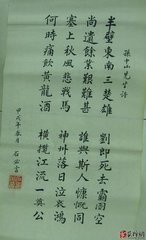 孫中山先生詩
半壁東南三楚雄
劉郎死去霸圖空
尚遺餘業艱難甚
誰與斯人慷慨同
塞上秋風悲戰馬
神州落日泣哀鴻
何時痛飲黃龍酒
橫攬江流一奠公